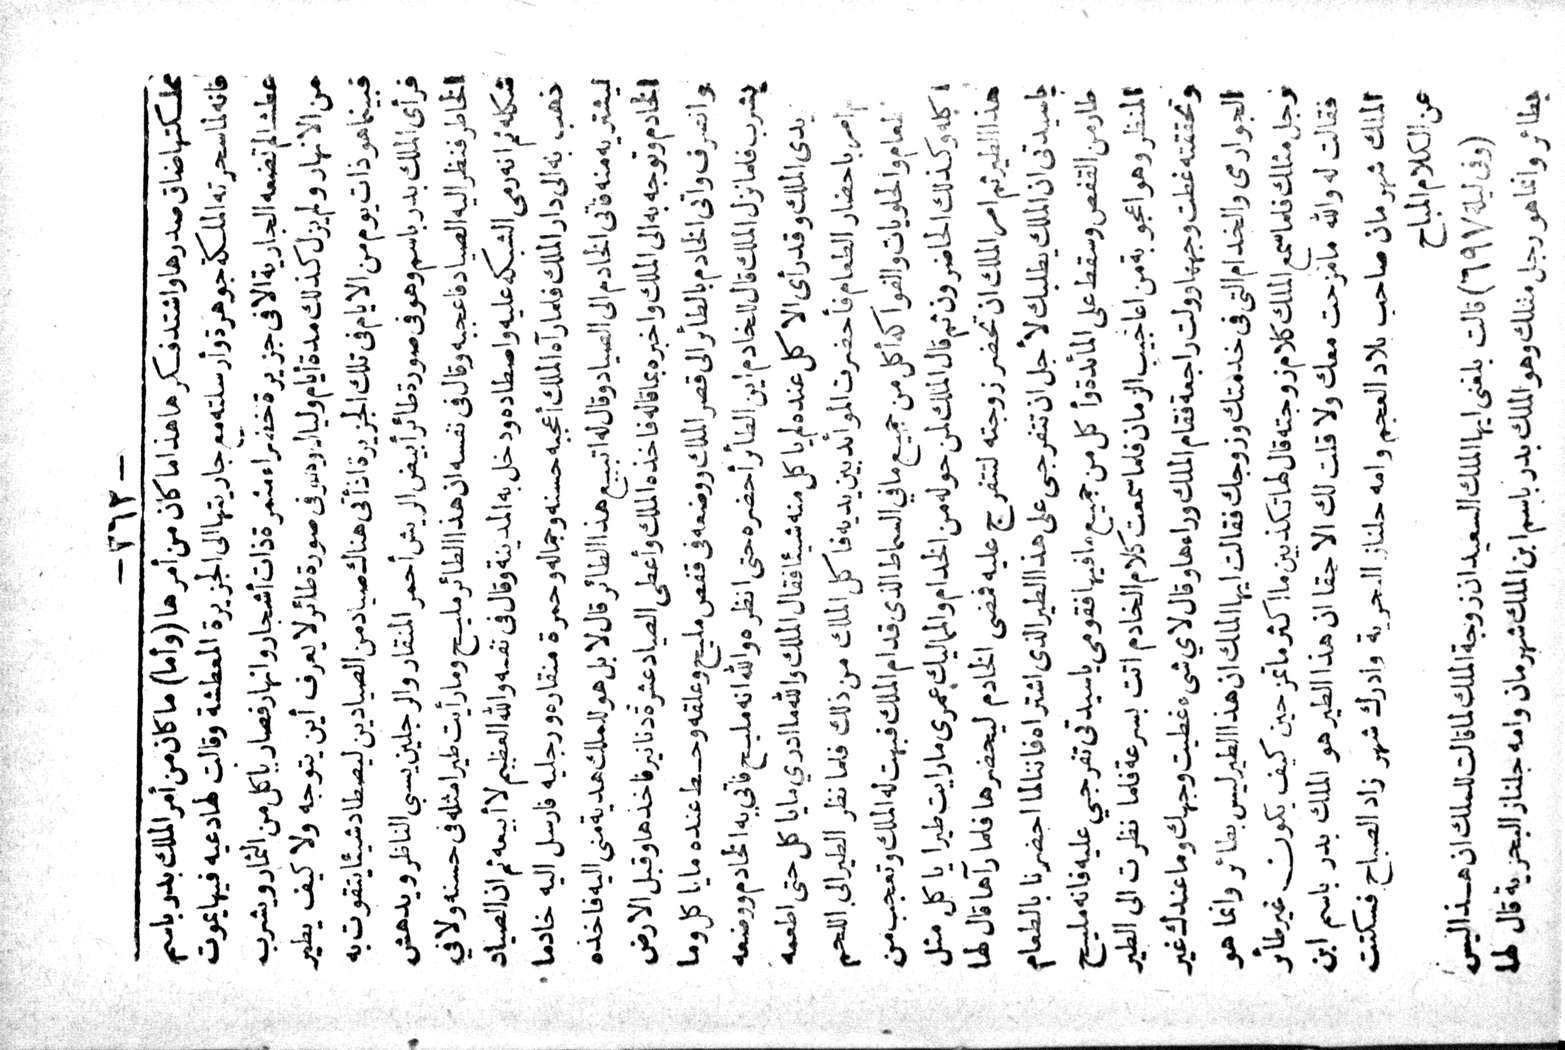 — ٣٦٢ —
مملكتها ضاق صدرها واشتد فكرها هذا ما كان من أمرها (وأما) ما كان من أمر الملك بدر باسم
فانه لما سحرته الملكة جوهرة وأرسلته مع جاريتها الى الجزيرة المعطشة وقالت لها دعيه فيها يموت
عطشا لم تضعه الجارية الا في جزيرة خضراء مثمرة ذات أشجار وانهار فصار ياكل من الثمار ويشرب
من الانهار ولم يزل كذلك مدة أيام وليال وهو في صورة طائر لا يعرف أين يتوجه ولا كيف يطير
فبينما هو ذات يوم من الايام في تلك الجزيرة اذ أتى هناك صياد من الصيادين ليصطاد شيئا يتقوت به
فرأى الملك بدر باسم وهو في صورة طائر أبيض الريش أحمر المنقار والرجلين يسبي الناظر ويدهش
الخاطر فنظر اليه الصياد فاعجبه وقال في نفسه ان هذا الطائر مليح وما رأيت طيرا مثله في حسنه ولا في
شكله ثم انه رمى الشبكة عليه واصطاده ودخل به المدينة وقال في نفسه والله العظيم لا أبيعه ثم ان الصياد
ذهب به الى دار الملك فلما رآه الملك أعجبه حسنه وجماله وحمرة منقاره ورجليه فارسل اليه خادما
ليشتريه منه فاتى الخادم الى الصياد وقال له اتبيع هذا الطائر قال لا بل هو للملك هدية مني اليه فاخذه
الخادم وتوجه به الى الملك واخبره بما قاله فاخذه الملك وأعطى الصياد عشرة دنانير فاخذها وقبل الارض
وانصرف واتى الخادم بالطائر الى قصر الملك ووضعه في قفص مليح وعلقه وحط عنده ما ياكل وما
يشرب فلما نزل الملك قال للخادم اين الطائر أحضره حتى انظره والله انه مليح فأتى به الخادم ووضعه
يدى الملك وقد رأى الاكل عنده لم ياكل منه شيئا فقال الملك والله ما ادري ما ياكل حتى اطعمه
امر باحضار الطعام فأحضرت الموائد بين يديه فاكل الملك من ذلك فلما نظر الطير الى اللحم
الطعام والحلويات والفواكه أكل من جميع ما في السماط الذى قدام الملك فبهت له الملك وتعجب من
اكله وكذلك الحاضرون ثم قال الملك لمن حوله من الخدام والمماليك عمرى ما رايت طيرا ياكل مثل
هذا الطير ثم امر الملك ان تحضر زوجته لتتفرج عليه فمضى الخادم ليحضرها فلما رآها قال لها
ياسيدتى ان الملك يطلبك لأجل ان تتفرجى على هذا الطير الذى اشتراه فاننا لما احضرنا بالطعام
طار من القفص وسقط على المائدة وأكل من جميع ما فيها فقومى ياسيدتى تفرجي عليه فانه مليح
المنظر وهو اعجوبة من اعاجيب الزمان فلما سمعت كلام الخادم اتت بسرعة فلما نظرت الى الطير
وتحققته غطت وجهها وولت راجعة فقام الملك وراءها وقال لاي شىء غطيت وجهك وما عندك غير
الجوارى والخدام التى في خدمتك وزوجك فقالت ايها الملك ان هذا الطير ليس بطائر وانما هو
رجل مثلك فلما سمع الملك كلام زوجته قال لها تكذبين ما اكثر ما تمزحين كيف يكون غير طائر
فقالت له والله ما مزحت معك ولا قلت لك الا حقا ان هذا الطير هو الملك بدر باسم ابن
الملك شهرمان صاحب بلاد العجم وامه جلناز البحرية وادرك شهر زاد الصباح فسكتت
عن الكلام المباح
(وفي ليلة ٦٩٧) قالت بلغنى ايها الملك السعيد ان زوجة الملك لما قالت للملك ان هذا ليس
بطائر وانما هو رجل مثلك وهو الملك بدر باسم ابن الملك شهرمان وامه جلناز البحرية قال لها